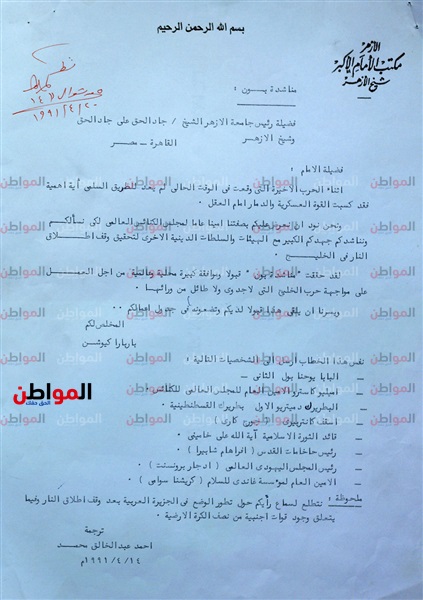 بسم الله الرحمن الرحيم
الأزهر
مكتب الإمام الأكبر
شيخ الأزهر
١٩٩١/٤/٢٠
مناشدة بـــون :
فضيلة رئيس جامعة الازهر الشيخ / جاد الحق على جاد الحق
وشيخ الازهر
القاهرة - مصر
فضيلة الامام :
اثناء الحرب الاخيرة التى وقعت فى الوقت الحالى لم يعد للطريق السلمى أية اهمية
فقد كسبت القوة العسكرية والدمار امام العقل .
ونحن نود ان بصفتنا امينا عاما لمجلس الكنائس العالمى لكى نسألكم
ونناشدكم جهدكم الكبير مع الهيئات والسلطات الدينية الاخرى لتحقيق وقف اطلاق
النار فى الخليج .
لقد حققت " مناشدة بون " قبولا وموافقة كبيرة محلية وعالمية من اجل العمل
على مواجهة حرب الخليج التى لا جدوى ولا طائل من ورائها .
ويسرنا ان يلقى هذا قبولا لديكم وتضعونه فى جدول اعمالكم ..
المخلص لكم
باربارا كيوشن
نفس هذا الخطاب أرسل الى الشخصيات التالية :
_ البابا يوحنا بول الثانى .
_ اميليو كاسترو الامين العام للمجلس العالمى للكنائس .
_ البطريرك ديمتريو الاول بطريرك القسطنطينية .
_ اسقف كانتربرى ( جورج كارى )
_ قائد الثورة الاسلامية آية الله على خامينى .
_ رئيس حاخامات القدس ( افراهام شابيرا ) .
_ رئيس المجلس اليهودى العالمى ( ادجار برونسنت ) .
_ الامين العام لمؤسسة غاندى للسلام ( كريشنا سوامى ) .
ملحوظة : نتطلع لسماع رأيكم حول تطور الوضع فى الجزيرة العربية بعد وقف اطلاق النار وفيما
يتعلق وجود قوات اجنبية من نصف الكرة الارضية .
ترجمة
احمد عبد الخالق محمد
١٩٩١/٤/١٤م
المواطن